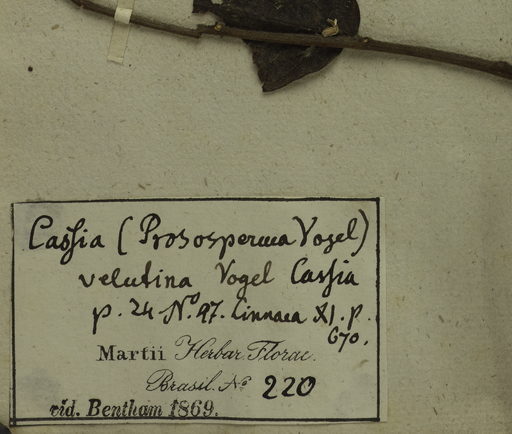 Cassia (Prososperma Vogel)
velutina Vogel Cassia
p. 24 No. 97. Linnaea XI. p.
670.
Martii Herbar. Florae.
Brasil. No 220
vid. Bentham 1869.